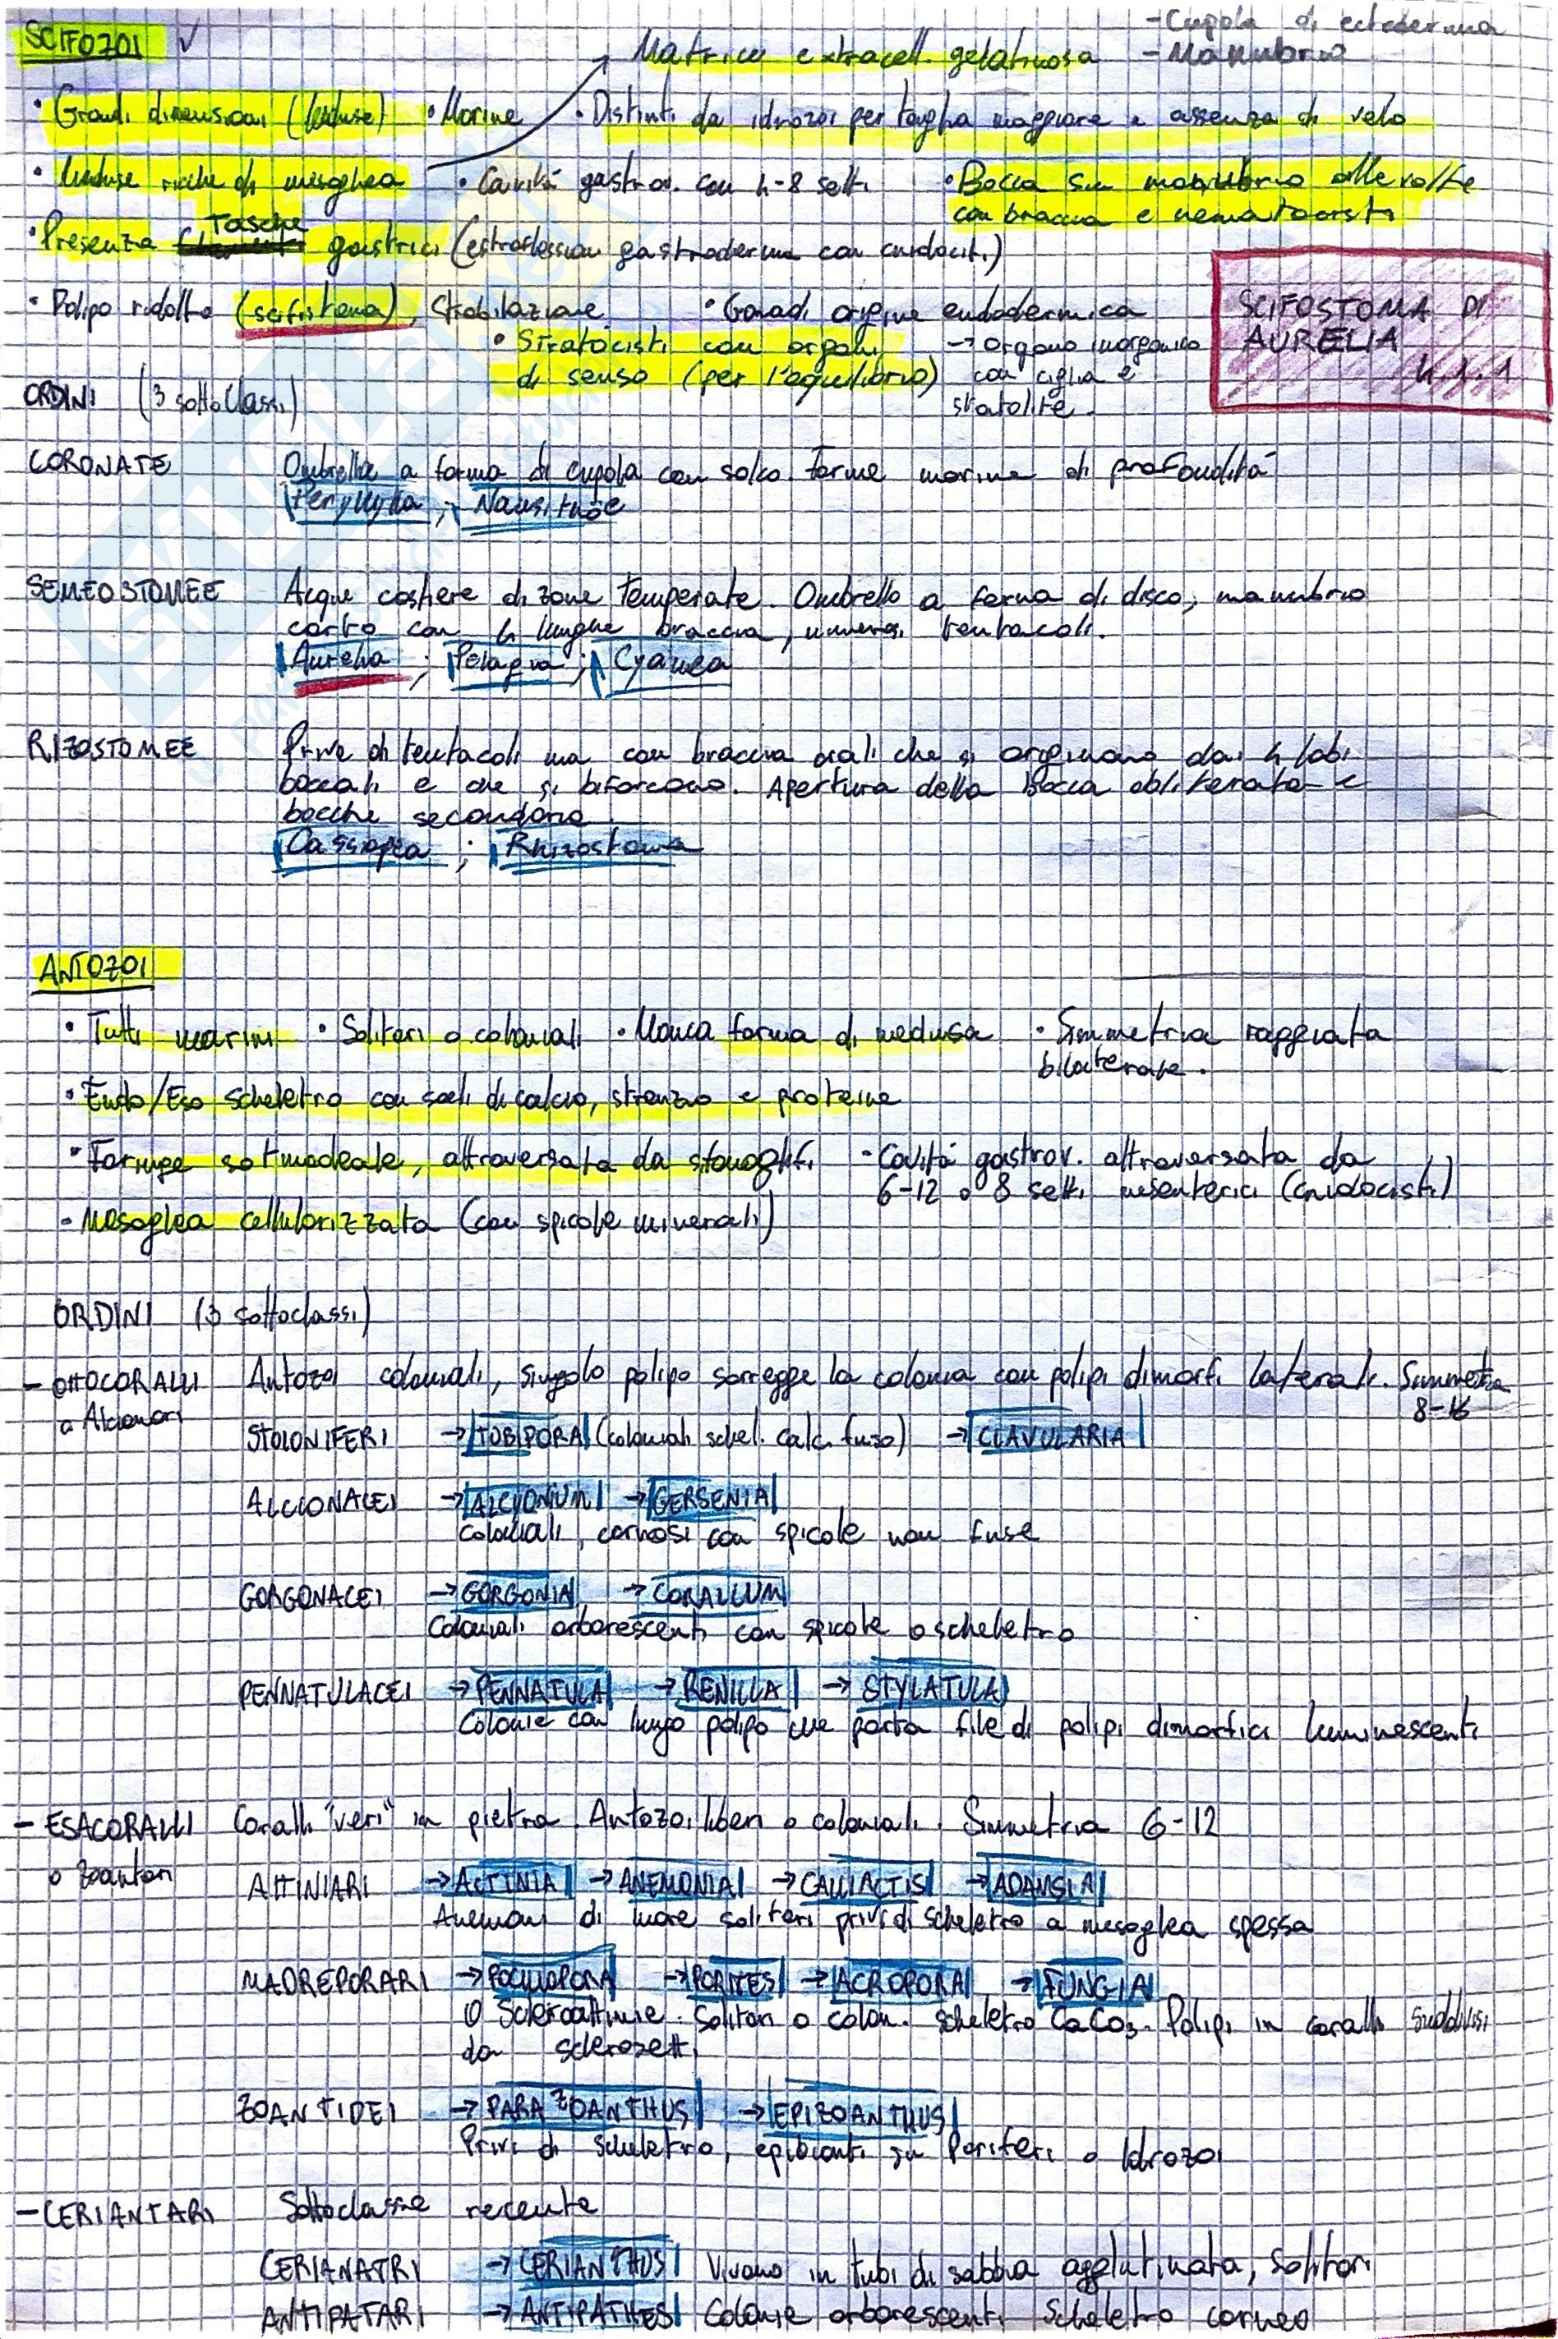 - Cupola di ectoderma
SCIFOZOI ✓
Matrice extracell. gelatinosa - Manubrio
• Grandi dimensioni (Meduse) • Marine • Distinti da idrozoi per taglia maggiore e assenza di velo
• Meduse ricche di mesoglea • Cavità gastrov. con 4-8 setti • Bocca su manubrio alle volte
con braccia e nematocisti
• Presenza Tasche gastrici (estroflessioni gastroderma con cnidociti)
• Polipo ridotto (scifistoma), Strobilazione • Gonadi origine endodermica
SCIFOSTOMA DI
AURELIA
4.1.1
• Stratocisti con organi → organo inorganico
di senso (per l'equilibrio) con ciglia e
statolite.
ORDINI (3 sottoclassi)
CORONATE Ombrella a forma di cupola con solco. Forme marine di profondità
Periphylla; Nausithöe
SEMEOSTOMEE Acque costiere di zone temperate. Ombrello a forma di disco, manubrio
corto con 4 lunghe braccia, numerosi tentacoli.
Aurelia; Pelagia; Cyanea
RIZOSTOMEE Prive di tentacoli ma con braccia orali che si originano dai 4 lobi
boccali e che si biforcano. Apertura della Bocca obliterata e
bocche secondarie
Cassiopea; Rhizostoma
ANTOZOI
• Tutti marini • Solitari o coloniali • Manca forma di medusa • Simmetria raggiata
bilaterale.
• Endo/Eso scheletro con sali di calcio, stronzio e proteine
• Faringe sotmodeale, attraversata da sifonoglifi • Cavità gastrov. attraversata da
6-12 o 8 setti mesenterici (cnidocisti)
- Mesoglea cellularizzata (con spicole minerali)
ORDINI (3 sottoclassi)
- OTTOCORALLI Antozoi coloniali, singolo polipo sorregge la colonia con polipi dimorfi laterali. Simmetria
o Alcionari 8-16
STOLONIFERI → TUBIPORA (coloniali schel. calc. fuso) → CLAVULARIA
ALCIONACEI → ALCYONIUM → GERSENIA
Coloniali, carnosi con spicole non fuse
GORGONACEI → GORGONIA → CORALLUM
Coloniali arborescenti con spicole o scheletro
PENNATULACEI → PENNATULA → RENILLA → STYLATULA
Colonie con lungo polipo che porta file di polipi dimorfici luminescenti
- ESACORALLI Coralli "veri" in pietra. Antozoi liberi o coloniali. Simmetria 6-12
o Zoantari
ATTINIARI → ACTINIA → ANEMONIA → CALLIACTIS → ADAMSIA
Anemoni di mare solitari privi di scheletro a mesoglea spessa
MADREPORARI → POCILLOPORA → PORITES → ACROPORA → FUNGIA
O Scleroattinie. Solitari o colon. scheletro CaCO₃. Polipi in coralli suddivisi
da sclerosetti
ZOANTIDEI → PARAZOANTHUS → EPIZOANTHUS
Privi di scheletro, epibionti su Poriferi o Idrozoi
- CERIANTARI Sottoclasse recente
CERIANATRI → CERIANTHUS Vivono in tubi di sabbia agglutinata, Solitari
ANTIPATARI → ANTIPATHES Colonie arborescenti Scheletro corneo